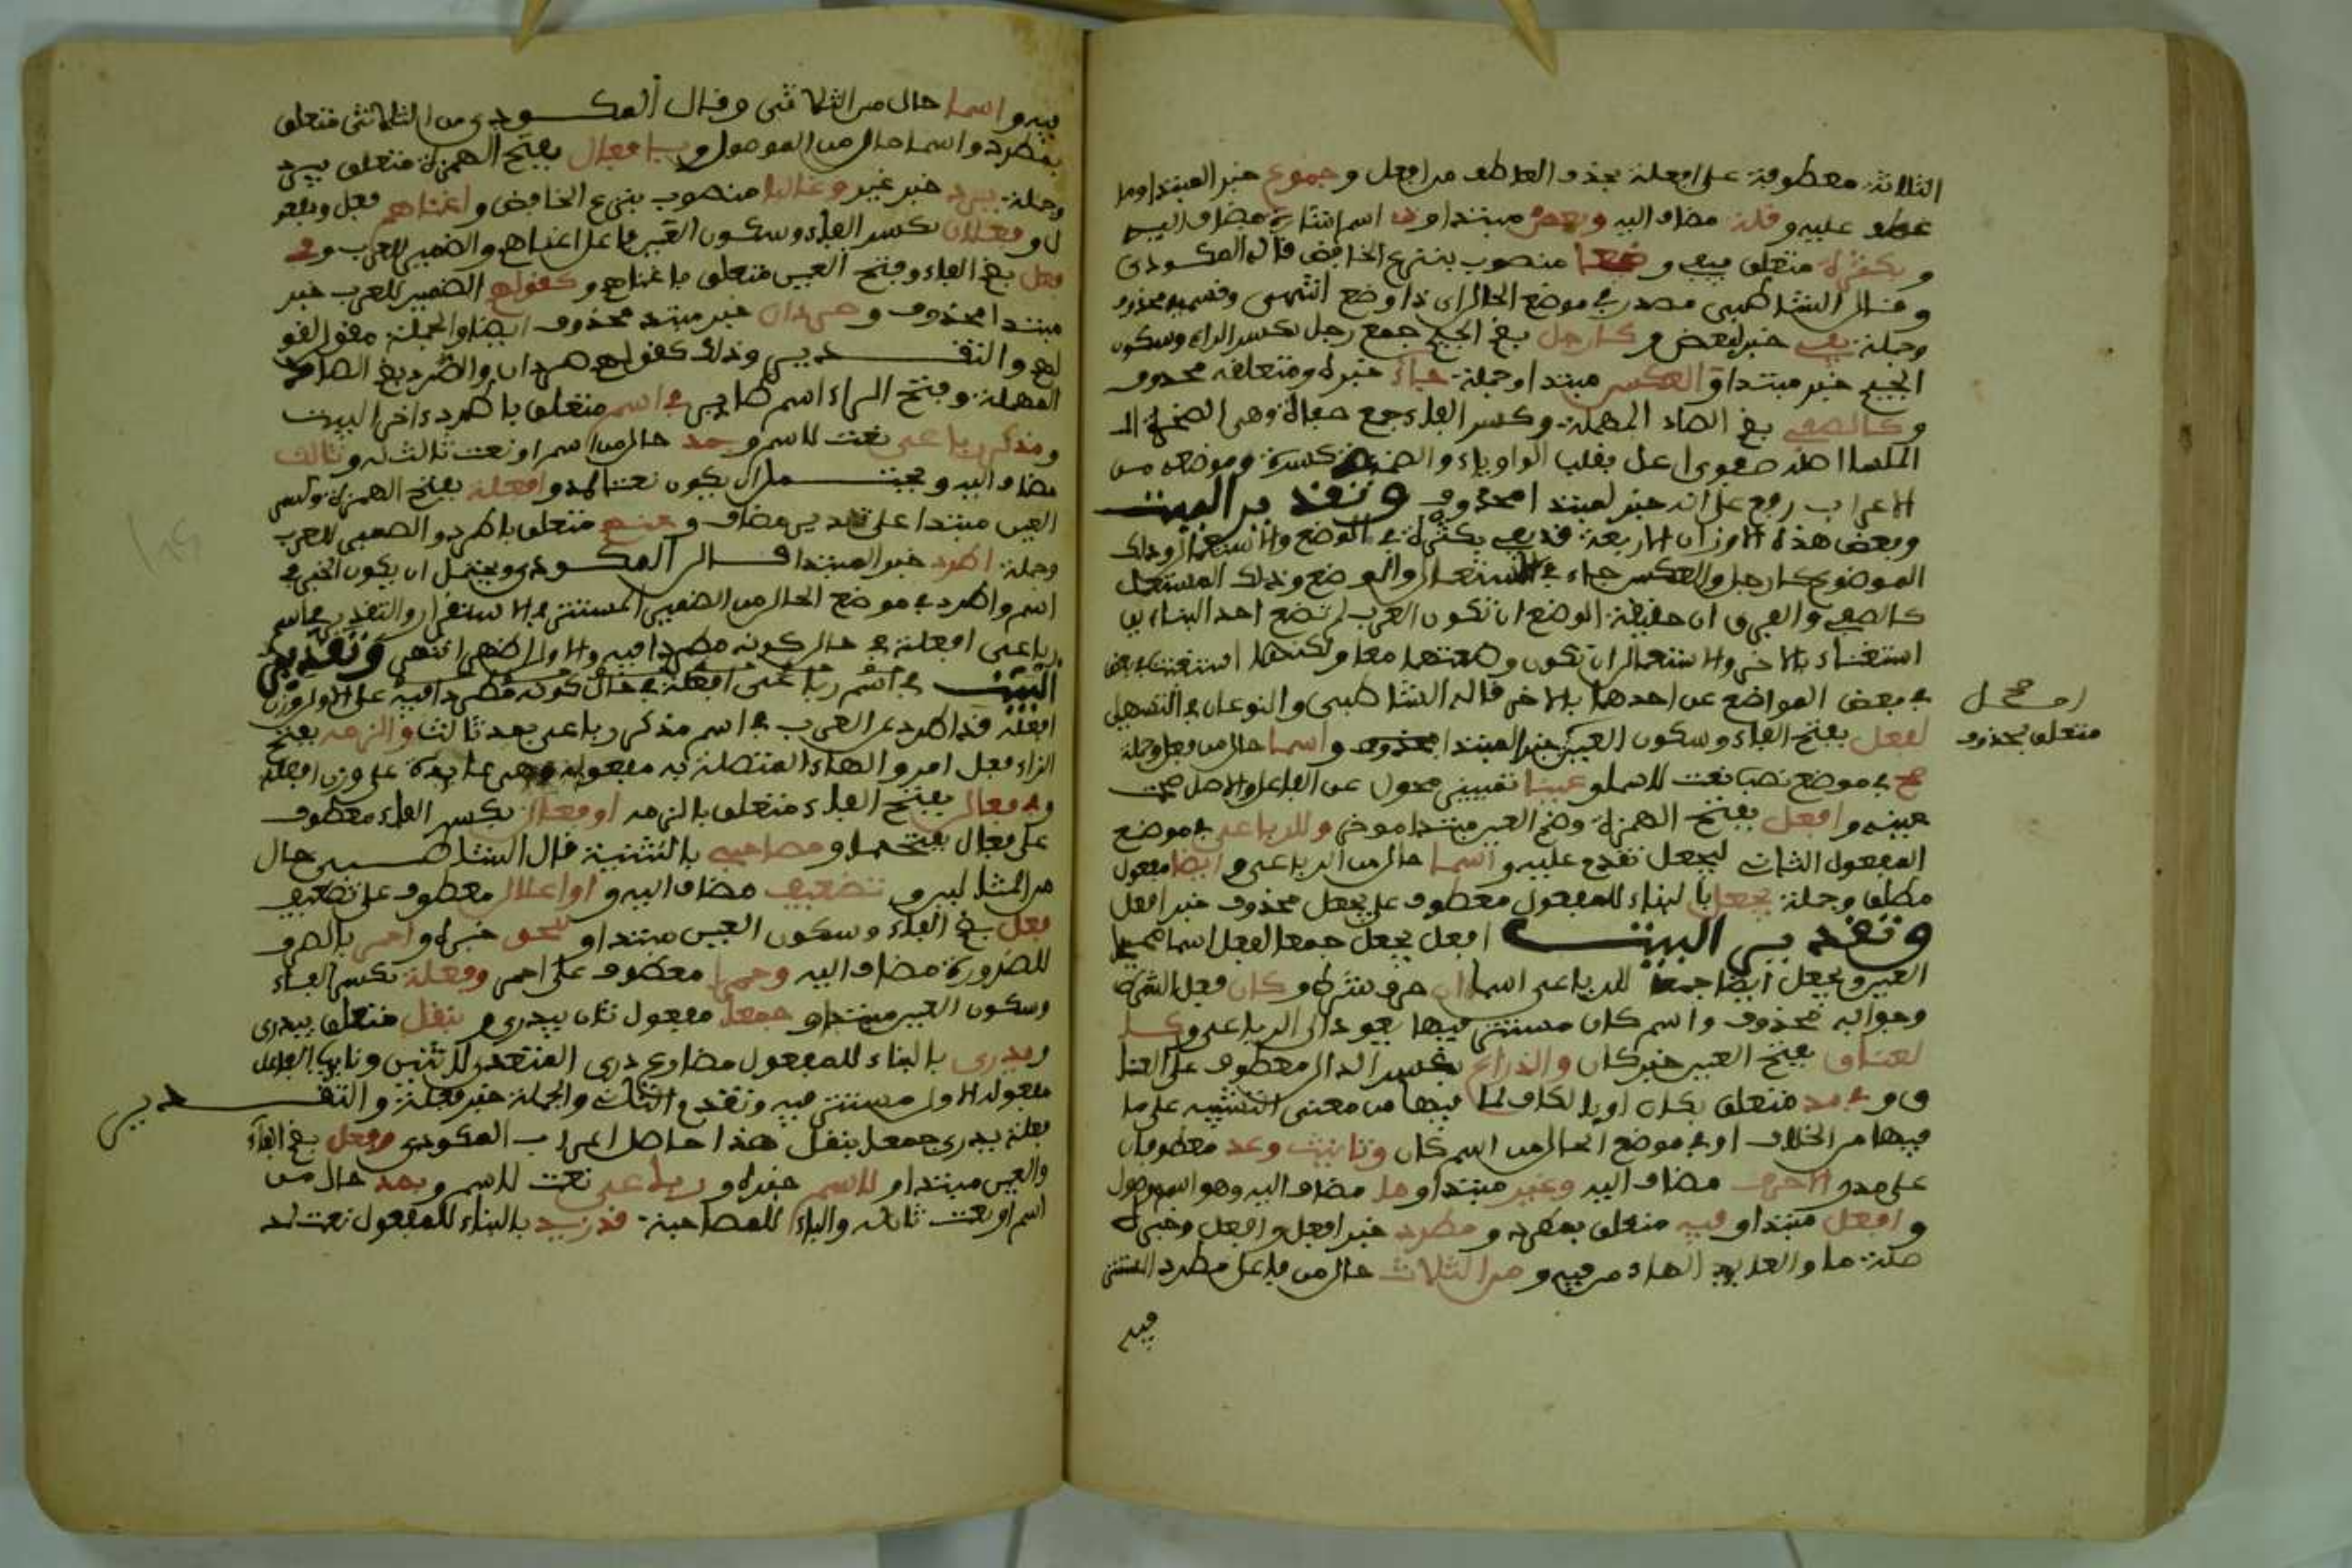 الثلاثة معطوفة على افعلة بحذف العاطف من افعل وجموع خبر المبتدا وما
عطف عليه وقلة مضاف اليه وبعض مبتدا وذا اسم اشارة مضاف اليه
وبكثرة متعلق بيفي ووضعا منصوب بنزع الخافض قاله المكودي
وقال الشاطبي مصدر في موضع الحال اي ذا وضع انتهى وقسيمه محذوف
وجملة يفي خبر بعض وكارجل بضم الجيم جمع رجل بكسر الراء وسكون
الجيم خبر مبتدا والعكس مبتدا وجملة جاء خبره ومتعلقه محذوف
وكالصفي بضم الصاد المهملة وكسر الفاء جمع صفاة وهي الصخرة
الملسا اصله صفوي اعل بقلب الواو ياء والضمة كسرة وموضعه من
الاعراب رفع على انه خبر لمبتدا محذوف وتقدير البيت
وبعض هذه الاوزان الاربعة قد يفي بكثرة في الوضع والاستعمال وذلك
الموضوع كارجل والعكس جاء في الاستعمال والوضع وذلك المستعمل
كالصفي والفرق ان حقيقة الوضع ان تكون العرب لم تضع احد البناءين
استغناء بالاخر والاستعمال ان تكون وضعتهما معا ولكنها استغنت
في بعض المواضع عن احدهما بالاخر قاله الشاطبي والنوعان في التسهيل
لفعل بفتح الفاء وسكون العين خبر المبتدا محذوف واسما حال من فعل وجملة
صح في موضع نصب نعت لاسما وعينا تمييز محول عن الفاعل والاصل صحت
عينه وافعل بفتح الهمزة وضم العين مبتدا موخر وللرباعي في موضع
المفعول الثاني ليجعل تقدم عليه واسما حال من الرباعي وايضا مفعول
مطلق وجملة يجعل بالبناء للمفعول معطوف على يجعل محذوف خبر افعل
وتقدير البيت افعل يجعل جمعا لفعل اسما صحيح
العين ويجعل ايضا جمعا للرباعي اسما ان حرف شرط وكان فعل الشرط
وجوابه محذوف واسم كان مستتر فيها يعود الى الرباعي وك
لعناق بفتح العين خبر كان والذراع بكسر الذال معطوف على العنا
ق وفي مد متعلق بكان او بالكاف لما فيها من معنى التشبيه على ما
فيها من الخلاف او في موضع الحال من اسم كان وتانيث وعد معطوفان
على مد والاحرف مضاف اليه وغير مبتدا وما مضاف اليه وهو اسم موصول
وافعل مبتدا وفيه متعلق بمطرد ومطرد خبر افعل وافعل وخبره
صلة ما والعايد الهاء من فيه ومن الثلاث حال من فاعل مطرد المستتر
فيه
او صح
متعلق بمحذوف
فيه واسما حال من الثلاثي وقال المكودي من الثلاثي متعلق
بمطرد واسما حال من الموصول وبافعال بفتح الهمزة متعلق بيرد
وجملة يرد خبر غير وغالبا منصوب بنزع الخافض واغناهم فعل ومفعو
ل وفعلان بكسر الفاء وسكون العين فاعل اغناهم والضمير للعرب وفي
فعل بضم الفاء وفتح العين متعلق باغناهم وكقولهم الضمير للعرب خبر
مبتدا محذوف وصردان خبر مبتدا محذوف ايضا والجملة مقول القو
لهم والتقدير وذلك كقولهم صردان والصرد بضم الصاد
المهملة وفتح الراء اسم طاير في اسم متعلق باطرد اخر البيت
ومذكر رباعي نعت لاسم وبمد حال من اسم او نعت ثالث له وثالث
مضاف اليه ويحتمل ان يكون نعتا لمد وافعلة بفتح الهمزة وكسر
العين مبتدا على تقدير مضاف وعنهم متعلق باطرد والضمير للعرب
وجملة اطرد خبر المبتدا قال المكودي ويحتمل ان يكون الخبر في
اسم واطرد في موضع الحال من الضمير المستتر في الاستقرار والتقدير في اسم
رباعي افعلة في حال كونه مطردا فيه والاول اظهر انتهى وتقدير
البيت في اسم رباعي افعلة في حال كونه مطردا فيه على الاول وزن
افعلة قد اطرد عن العرب في اسم مذكر رباعي بمد ثالث والزمه بفتح
الزاء فعل امر والهاء المتصلة به مفعوله وهي عايدة على وزن افعلة
وفي فعال بفتح الفاء متعلق بالزمه او فعال بكسر الفاء معطوف
على فعال بفتحها ومصاحبي بالتثنية قال الشاطبي حال
من المثالين وتضعيف مضاف اليه واو اعلال معطوف على تضعيف
فعل بضم الفاء وسكون العين مبتدا ولنحو خبره واحمر بالصرف
للضرورة مضاف اليه وحمرا معطوف على احمر وفعلة بكسر الفاء
وسكون العين مبتدا وجمعا مفعول ثان بيدرى وبنقل متعلق بيدرى
ويدرى بالبناء للمفعول مضارع درى المتعدي لاثنين ونايب الفاعل
مفعوله الاول مستتر فيه وتقدم الثاني والجملة خبر فعلة والتقدير
فعلة يدرى جمعا بنقل هذا حاصل اعراب المكودي وفعل بضم الفاء
والعين مبتدا ولاسم خبره ورباعي نعت لاسم وبمد حال من
اسم او نعت ثان له والباء للمصاحبة قد زيد بالبناء للمفعول نعت لمد